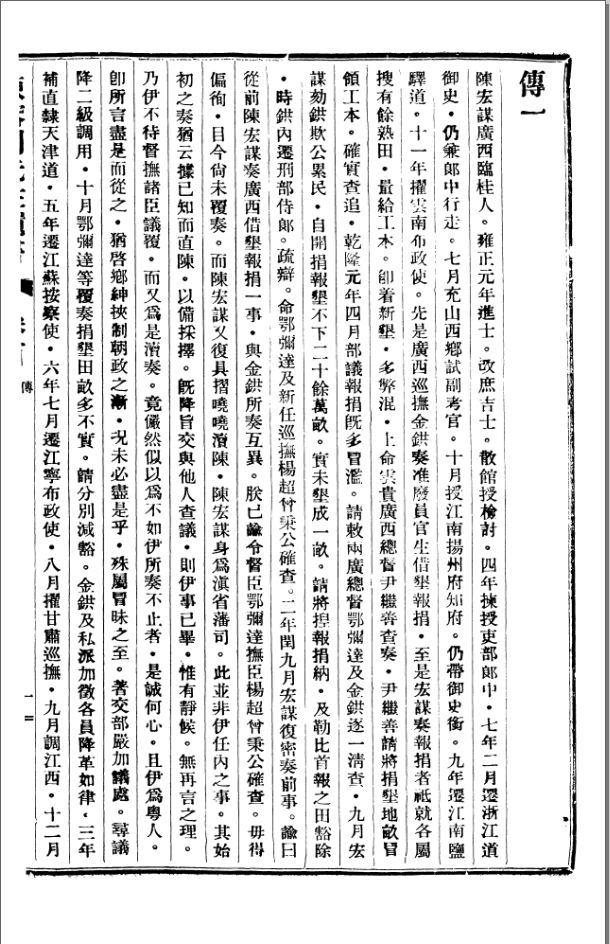 傳一
陳宏謀廣西臨桂人。雍正元年進士。改庶吉士。散館授檢討。四年揀授吏部郎中・七年二月遷浙江道
御史・仍兼郎中行走。七月充山西鄉試副考官。十月授江南揚州府知府。仍帶御史銜。九年遷江南鹽
驛道。十一年擢雲南布政使。先是廣西巡撫金鉷奏准廢員官生借墾報捐・至是宏謀奏報捐者祇就各屬
搜有餘熟田・量給工本。卽着新墾・多弊混・上命雲貴廣西總督尹繼善查奏・尹繼善請將捐墾地畝冒
領工本。確實查追・乾隆元年四月部議報捐既多冒濫。請敕兩廣總督鄂彌達及金鉷逐一清查・九月宏
謀劾鉷欺公累民・自開捐報墾不下二十餘萬畝。實未墾成一畝。請將捏報捐納・及勒比首報之田豁除
・時鉷內遷刑部侍郎。疏辯。命鄂彌達及新任巡撫楊超曾秉公確查。二年閏九月宏謀復密奏前事。諭曰
從前陳宏謀奏廣西借墾報捐一事・與金鉷所奏互異。朕已諭令督臣鄂彌達撫臣楊超曾秉公確查。毋得
偏徇・目今尙未覆奏。而陳宏謀又復具摺曉曉瀆陳・陳宏謀身爲滇省藩司。此並非伊任內之事。其始
初之奏猶云據已知而直陳・以備採擇。旣降旨交與他人查議・則伊事已畢・惟有靜候。無再言之理。
乃伊不待督撫諸臣議覆・而又爲是瀆奏。竟儼然似以爲不如伊所奏不止者・是誠何心。且伊爲粵人。
卽所言盡是而從之・猶啓鄉紳挾制朝政之漸・况未必盡是乎・殊屬冒昧之至。著交部嚴加議處。尋議
降二級調用・十月鄂彌達等覆奏捐墾田畝多不實。請分別減豁。金鉷及私派加徵各員降革如律・三年
補直隸天津道・五年遷江蘇按察使・六年七月遷江寧布政使・八月擢甘肅巡撫・九月調江西・十二月
傳
一